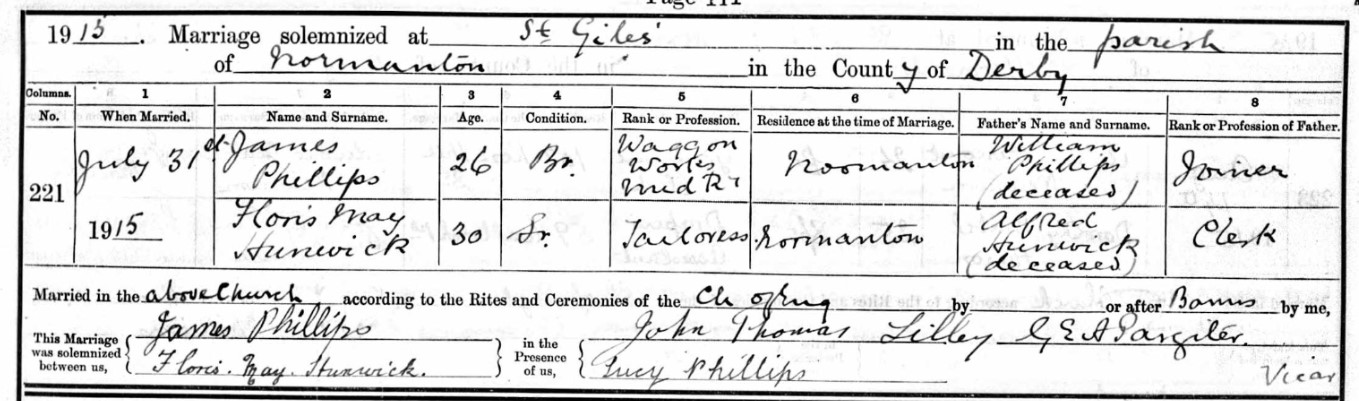 Page 111
1915. Marriage solemnized at St Giles' in the parish
of Normanton in the County of Derby
Columns. 1 2 3 4 5 6 7 8
No. When Married. Name and Surname. Age. Condition. Rank or Profession. Residence at the time of Marriage. Father's Name and Surname. Rank or Profession of Father.
221 July 31st 1915
James Phillips 26 Br. Waggon Works Mid Ry Normanton William Phillips (deceased) Joiner
Floris May Hunwick 30 Sr. Tailoress Normanton Alfred Hunwick (deceased) Clerk
Married in the above Church according to the Rites and Ceremonies of the Ch of Eng by or after Banns by me,
This Marriage was solemnized between us, James Phillips Floris May Hunwick. in the Presence of us, John Thomas Lilley Lucy Phillips G E A Pargiter. Vicar